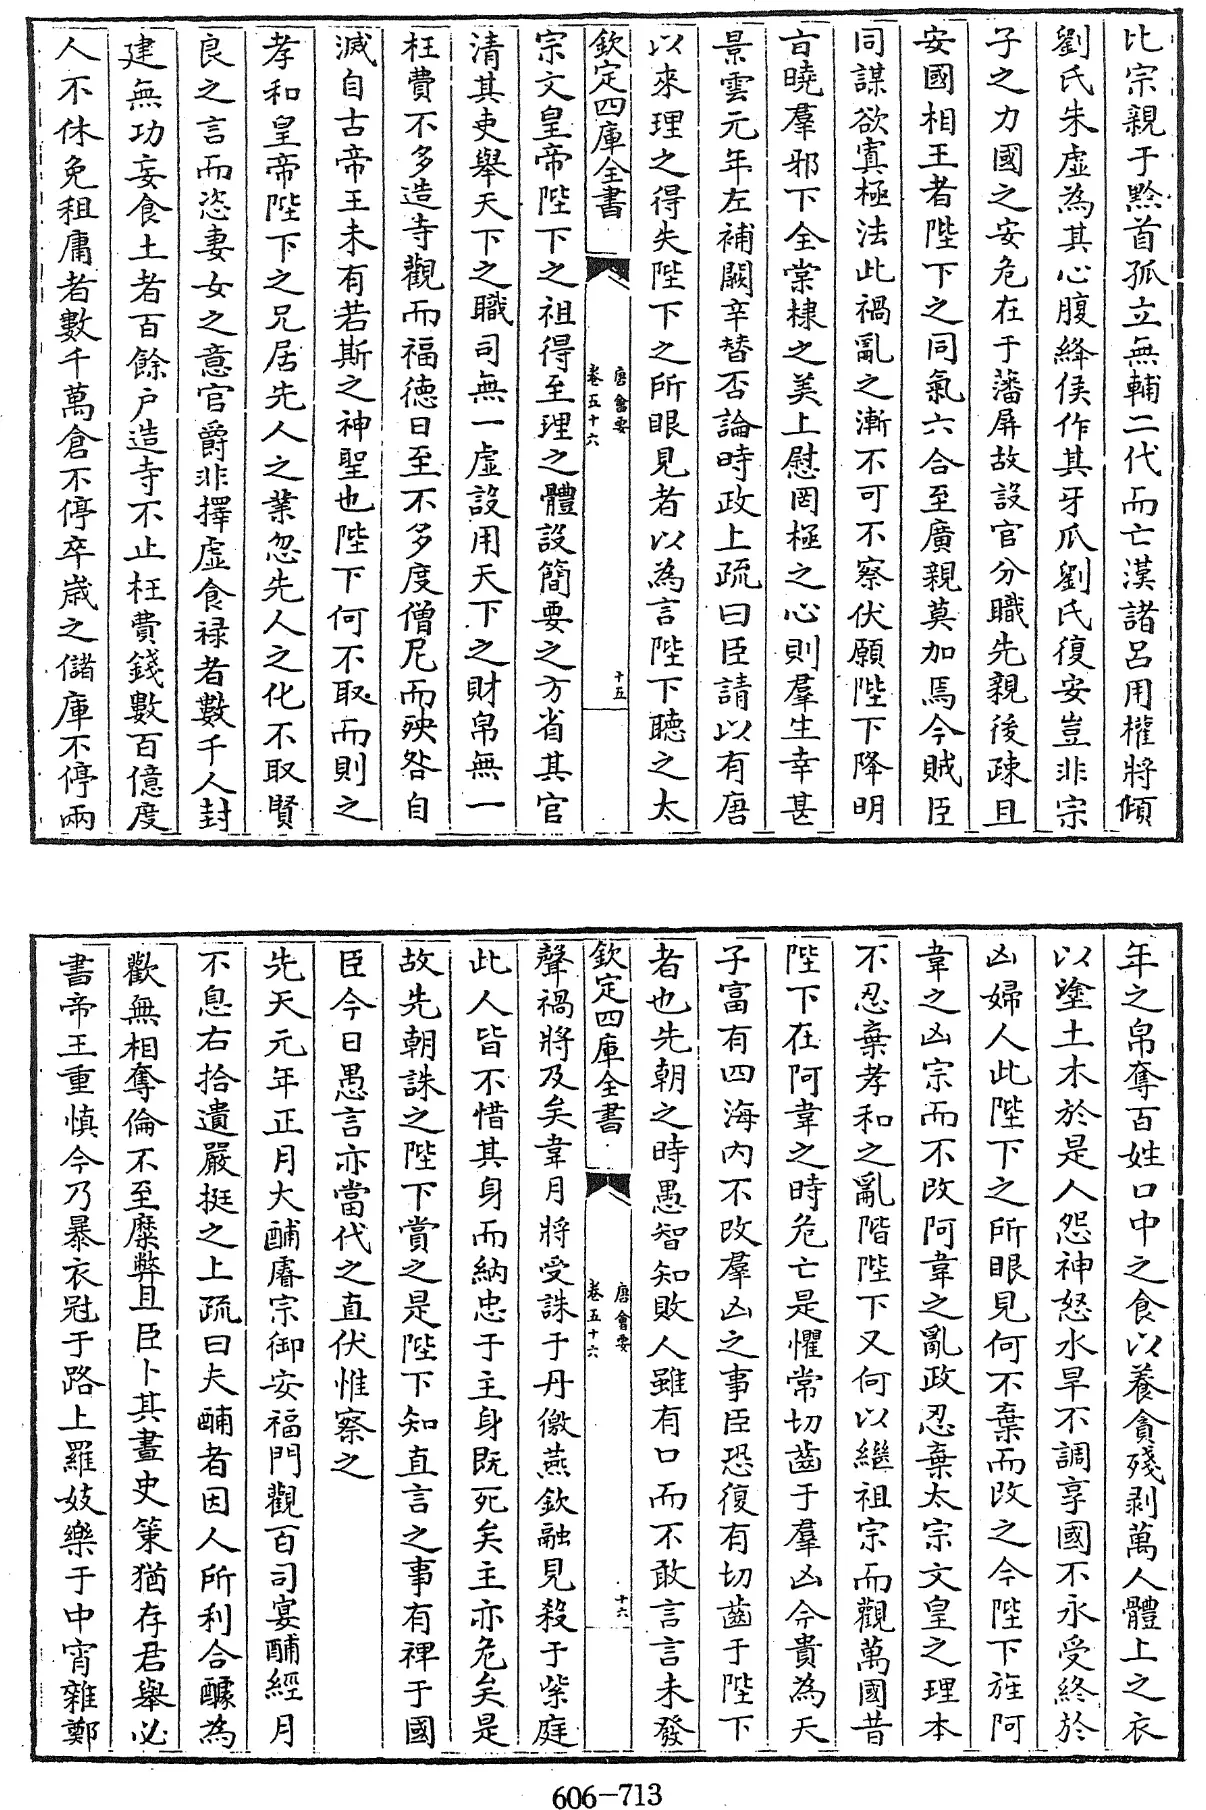 比宗親于黔首孤立無輔二代而亡漢諸呂用權將傾
劉氏朱虛為其心腹絳侯作其牙爪劉氏復安豈非宗
子之力國之安危在于藩屏故設官分職先親後疎且
安國相王者陛下之同氣六合至廣親莫加焉今賊臣
同謀欲寘極法此禍亂之漸不可不察伏願陛下降明
㫖曉羣邪下全棠棣之美上慰罔極之心則羣生幸甚
景雲元年左補闕辛替否論時政上疏曰臣請以有唐
以來理之得失陛下之所眼見者以為言陛下聽之太
欽定四庫全書
唐會要
卷五十六
十五
宗文皇帝陛下之祖得至理之體設簡要之方省其官
清其吏舉天下之職司無一虛設用天下之財帛無一
枉費不多造寺觀而福徳日至不多度僧尼而殃咎自
滅自古帝王未有若斯之神聖也陛下何不取而則之
孝和皇帝陛下之兄居先人之業忽先人之化不取賢
良之言而恣妻女之意官爵非擇虛食禄者數千人封
建無功妄食土者百餘户造寺不止枉費錢數百億度
人不休免租庸者數千萬倉不停卒歳之儲庫不停兩
年之帛奪百姓口中之食以養貪殘剥萬人體上之衣
以塗土木於是人怨神怒水旱不調享國不永受終於
凶婦人此陛下之所眼見何不棄而改之今陛下族阿
韋之凶宗而不改阿韋之亂政忍棄太宗文皇之理本
不忍棄孝和之亂階陛下又何以繼祖宗而觀萬國昔
陛下在阿韋之時危亡是懼常切齒于羣凶今貴為天
子富有四海内不改羣凶之事臣恐復有切齒于陛下
者也先朝之時愚智知敗人雖有口而不敢言言未發
欽定四庫全書
唐會要
卷五十六
十六
聲禍將及矣韋月將受誅于丹徼燕欽融見殺于紫庭
此人皆不惜其身而納忠于主身既死矣主亦危矣是
故先朝誅之陛下賞之是陛下知直言之事有禆于國
臣今日愚言亦當代之直伏惟察之
先天元年正月大酺睿宗御安福門觀百司宴酺經月
不息右拾遺嚴挺之上疏曰夫酺者因人所利合醵為
歡無相奪倫不至糜弊且臣卜其晝史策猶存君舉必
書帝王重慎今乃暴衣冠于路上羅妓樂于中宵雜鄭
606-713